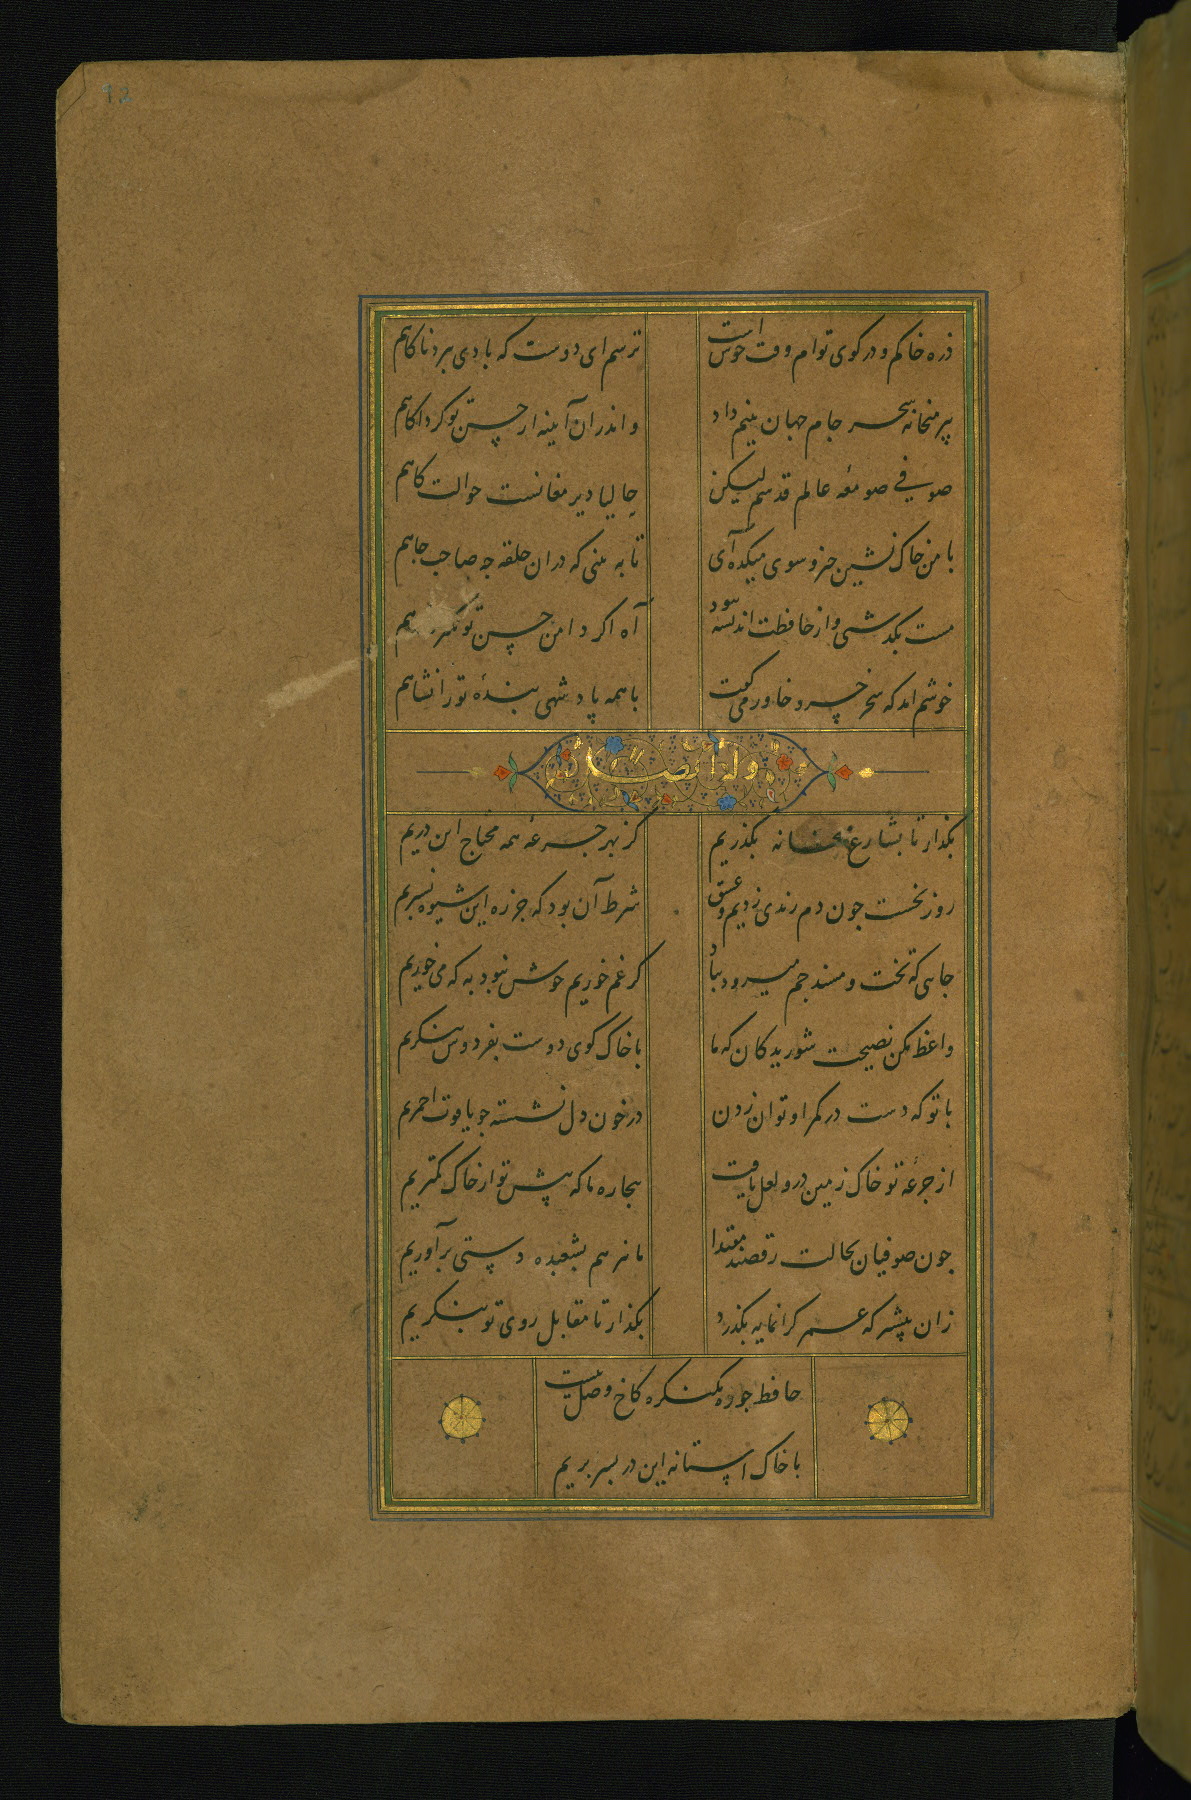 92
ذره خاکم و در کوی توام وقت خوش است
ترسم ای دوست که بادی ببرد ناکاهم
پیر میخانه سحر جام جهان بینم داد
و اندران آینه از حسن تو کرد اکاهم
صوفی صومعه عالم قدسم لیکن
حالیا دیر مغانست حوالت کاهم
با من خاک نشین خیز و سوی میکده آی
تا به بینی که دران حلقه چه صاحب جاهم
مست بکذشتی و از حافظت اندیشه نبود
آه اکر دامن حسن تو بکیرد آهم
خوشم آمد که سحر خسرو خاور می کفت
با همه پادشهی بنده تورانشاهم
وله ایضا
بکذار تا بشارع میخانه بکذریم
کز بهر جرعه همه محتاج این دریم
روز نخست چون دم رندی زدیم و عشق
شرط آن بود که جز ره این شیوه نسپریم
جایی که تخت و مسند جم میرود بباد
کر غم خوریم خوش نبود به که می خوریم
واعظ مکن نصیحت شوریدکان که ما
با خاک کوی دوست بفردوس ننکریم
با تو که دست در کمر او توان زدن
در خون دل نشسته چو یاقوت احمریم
از جرعه تو خاک زمین در و لعل یافت
بیچاره ما که پیش تو از خاک کمتریم
چون صوفیان بحالت رقصند مقتدا
ما نیز هم بشعبده دستی برآوریم
زان پیشتر که عمر کرانمایه بکذرد
بکذار تا مقابل روی تو بنکریم
حافظ چو ره بکنکره کاخ وصل نیست
با خاک استانه این در بسر بریم